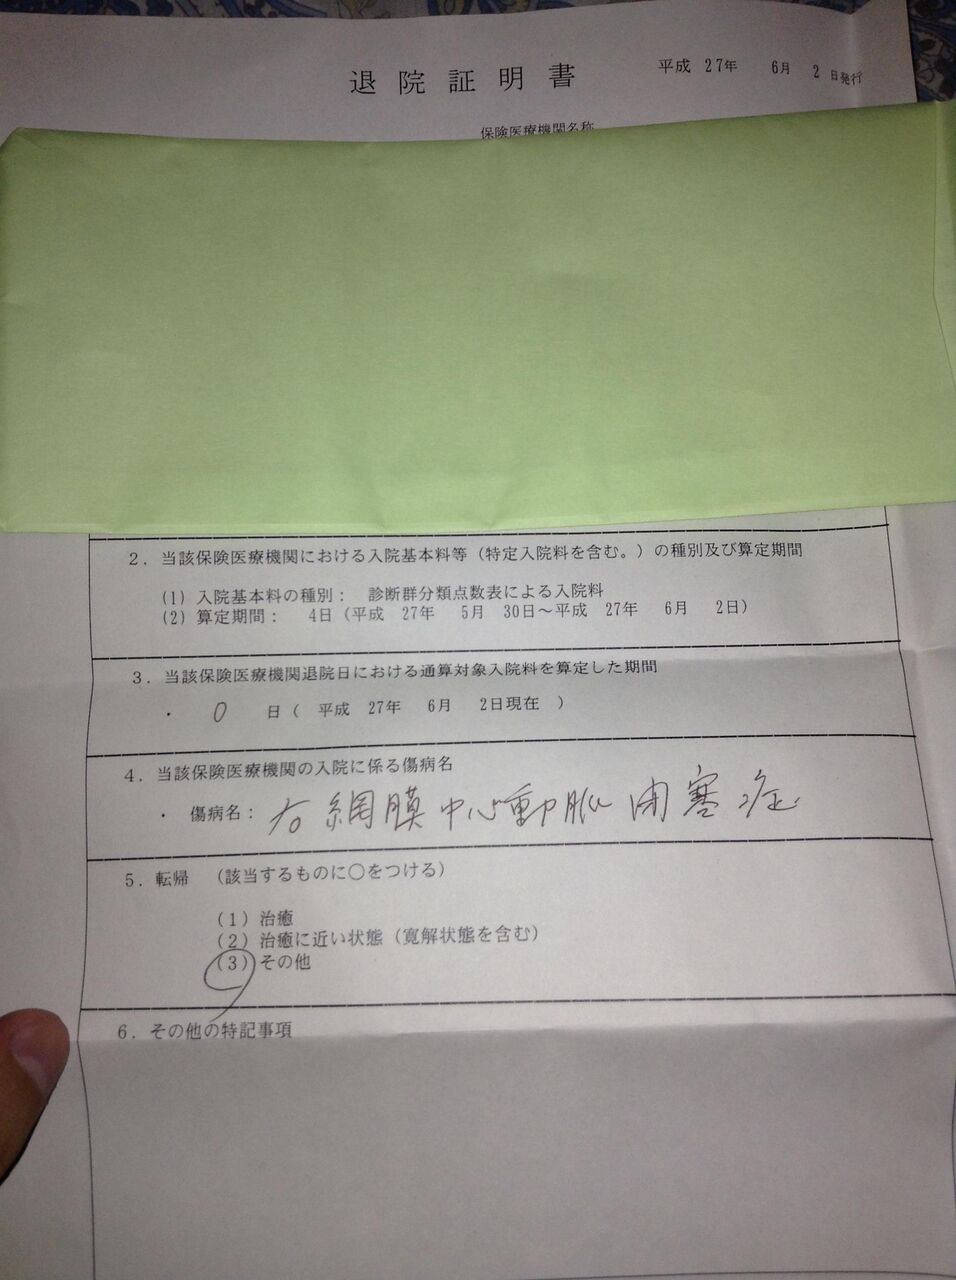 退院証明書
平成 27年 6月 2日発行
保険医療機関名称
2．当該保険医療機関における入院基本料等（特定入院料を含む。）の種別及び算定期間
(1) 入院基本料の種別： 診断群分類点数表による入院料
(2) 算定期間： 4日（平成 27年 5月 30日～平成 27年 6月 2日）
3．当該保険医療機関退院日における通算対象入院料を算定した期間
・ 0 日（ 平成 27年 6月 2日現在 ）
4．当該保険医療機関の入院に係る傷病名
・ 傷病名： 右網膜中心動脈閉塞症
5．転帰 （該当するものに○をつける）
(1) 治癒
(2) 治癒に近い状態（寛解状態を含む）
(3) その他
6．その他の特記事項